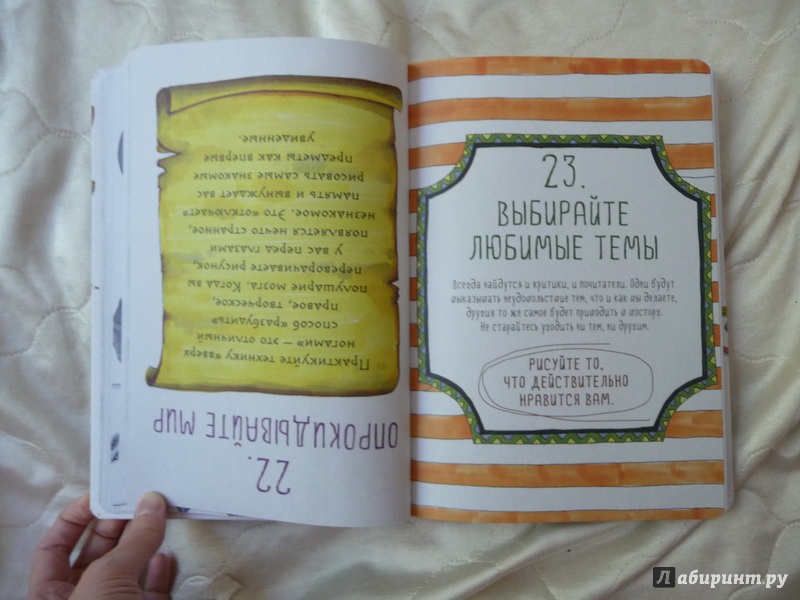 22.
ОПРОКИДЫВАЙТЕ МИР
Практикуйте технику «вверх
ногами» — это отличный
способ «разбудить»
правое, творческое,
полушарие мозга. Когда вы
переворачиваете рисунок,
у вас перед глазами
появляется нечто странное,
незнакомое. Это «отключает»
память и вынуждает вас
рисовать самые знакомые
предметы как впервые
увиденные.
23.
ВЫБИРАЙТЕ
ЛЮБИМЫЕ ТЕМЫ
Всегда найдутся и критики, и почитатели. Одни будут
выказывать неудовольствие тем, что и как вы делаете,
других то же самое будет приводить в восторг.
Не старайтесь угодить ни тем, ни другим.
РИСУЙТЕ ТО,
ЧТО ДЕЙСТВИТЕЛЬНО
НРАВИТСЯ ВАМ.
Лабиринт.ру